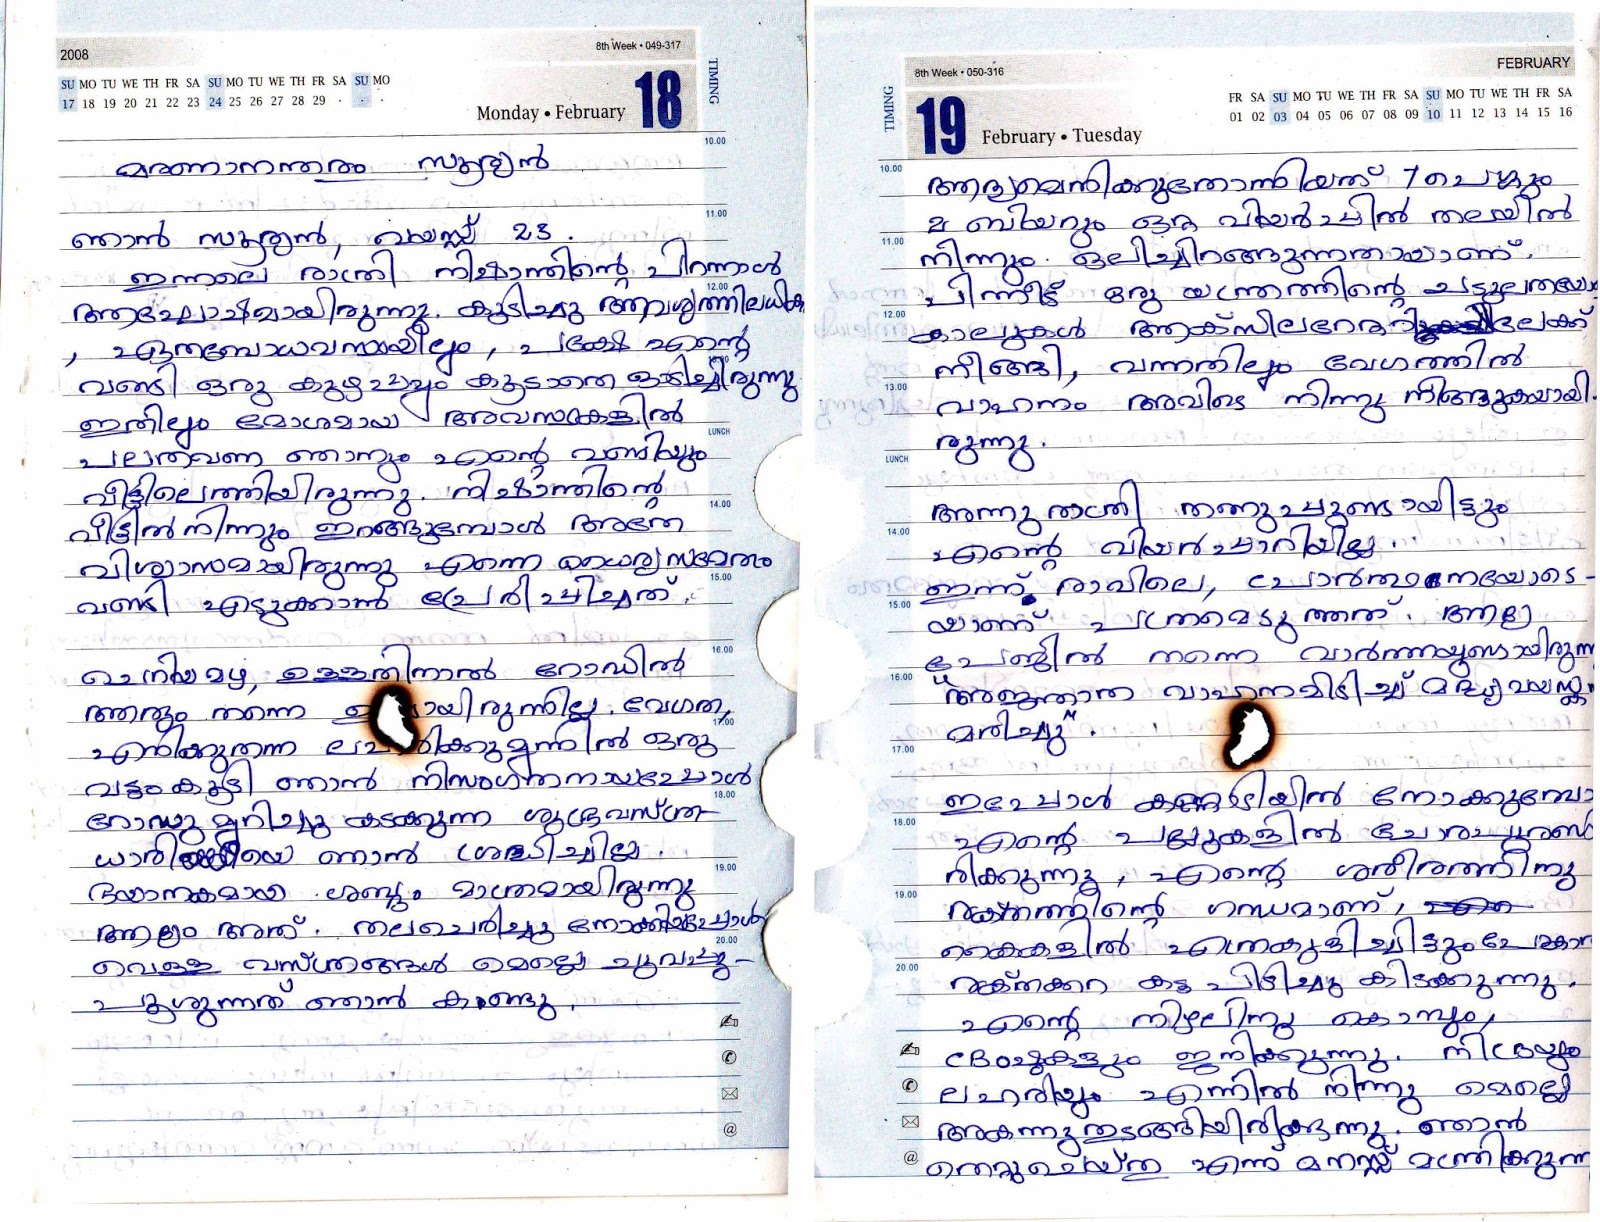 2008
8th Week • 049-317
SU MO TU WE TH FR SA SU MO TU WE TH FR SA SU MO
17 18 19 20 21 22 23 24 25 26 27 28 29 . . .
Monday • February 18
TIMING
10.00
മരണാനന്തരം സൂര്യൻ
11.00
ഞാൻ സൂര്യൻ, വയസ്സ് 23.
ഇന്നലെ രാത്രി നിഷാന്തിന്റെ പിറന്നാൾ
12.00
ആഘോഷമായിരുന്നു. കുടിച്ചു ആവശ്യത്തിലധികം
, എന്റെ
വണ്ടി ഒരു കുഴപ്പവും കൂടാതെ ഓടിച്ചിരുന്നു
13.00
ഇതിലും മോശമായ അവസ്ഥകളിൽ
LUNCH
പലതവണ ഞാനും എന്റെ വണ്ടിയും
വീട്ടിലെത്തിയിരുന്നു. നിഷാന്തിന്റെ
14.00
വീട്ടിൽനിന്നും ഇറങ്ങുമ്പോൾ അതേ
വിശ്വാസമായിരുന്നു എന്നെ ധൈര്യസമേതം
15.00
വണ്ടി എടുക്കാൻ പ്രേരിപ്പിച്ചത്.
16.00
ചെറിയമഴ, ഉള്ളതിനാൽ റോഡിൽ
ആരും തന്നെ ഉ ായിരുന്നില്ല. വേഗത,
17.00
എനിക്കുതന്ന ലഹരിക്കുമുന്നിൽ ഒരു
വട്ടംകൂടി ഞാൻ നിസംഗനായപ്പോൾ
18.00
റോഡു മുറിച്ചു കടക്കുന്ന ശുഭ്രവസ്ത്ര-
ധാരിയെ ഞാൻ ശ്രദ്ധിച്ചില്ല.
19.00
ഭയാനകമായ ശബ്ദം മാത്രമായിരുന്നു
ആദ്യം അത്. തലചെരിച്ചു നോക്കിയപ്പോൾ
20.00
വെള്ള വസ്ത്രങ്ങൾ മെല്ലെ ചുവപ്പു-
പൂശുന്നത് ഞാൻ കണ്ടു.
@
8th Week • 050-316
FEBRUARY
FR SA SU MO TU WE TH FR SA SU MO TU WE TH FR SA
01 02 03 04 05 06 07 08 09 10 11 12 13 14 15 16
19 February • Tuesday
TIMING
10.00
ആദ്യമെനിക്കുതോന്നിയത് 7 പെഗ്ഗും
ബിയറും ഒറ്റ വിയർപ്പിൽ തലയിൽ
11.00
നിന്നും ഒലിച്ചിറങ്ങുന്നതായാണ്.
പിന്നീട് ഒരു യന്ത്രത്തിന്റെ ചടുലതയോടെ
12.00
കാലുകൾ ആക്സിലറേറ്ററിലേക്ക്
നീങ്ങി, വന്നതിലും വേഗത്തിൽ
13.00
വാഹനം അവിടെ നിന്നു നീങ്ങുകയായി
രുന്നു.
LUNCH
അന്നു രാത്രി തണുപ്പുണ്ടായിട്ടും
14.00
എന്റെ വിയർപ്പാറിയില്ല.
ഇന്ന് രാവിലെ, പ്രാർത്ഥനയോടെ-
15.00
യാണ് പത്രമെടുത്തത്. ആദ്യ
പേജിൽ തന്നെ വാർത്തയുണ്ടായിരുന്നു
16.00
"അജ്ഞാത വാഹനമിടിച്ച് മദ്ധ്യവയസ്കൻ
മരിച്ചു".
17.00
ഇപ്പോൾ കണ്ണാടിയിൽ നോക്കുമ്പോൾ
18.00
എന്റെ പല്ലുകളിൽ ചോരപുരണ്ടി
രിക്കുന്നു, എന്റെ ശരീരത്തിനു
19.00
രക്തത്തിന്റെ ഗന്ധമാണ്,
കൈകളിൽ എത്രകുളിച്ചിട്ടും പോകാത്ത
20.00
രക്തക്കറ കട്ട പിടിച്ചു കിടക്കുന്നു.
എന്റെ നിഴലിനു കൊമ്പും,
ദ്രംഷ്ടകളും ജനിക്കുന്നു. നിദ്രയും
ലഹരിയും എന്നിൽ നിന്നു മെല്ലെ
അകന്നുതുടങ്ങിയിരിക്കുന്നു. ഞാൻ
@
തെറ്റുചെയ്തു എന്ന് മനസ്സ് മന്ത്രിക്കുന്നു